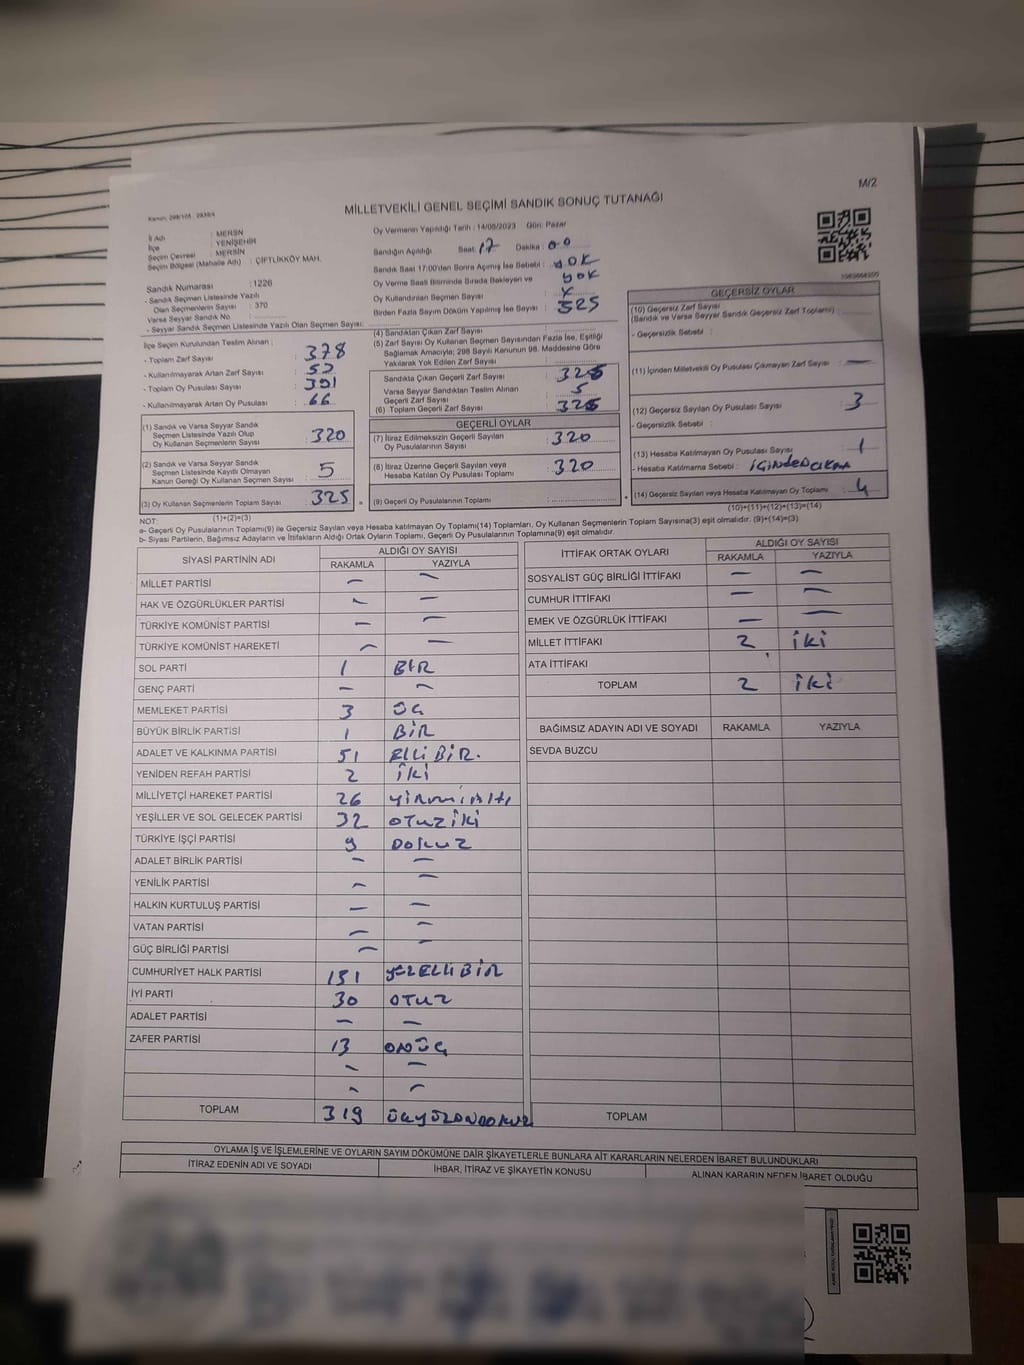 M/2
MİLLETVEKİLİ GENEL SEÇİMİ SANDIK SONUÇ TUTANAĞI
İl Adı : MERSİN
İlçe : YENİŞEHİR
Seçim Çevresi : MERSİN
Seçim Bölgesi (Mahalle Adı) : ÇİFTLİKKÖY MAH.
Sandık Numarası : 1226
- Sandık Seçmen Listesinde Yazılı
Olan Seçmenlerin Sayısı : 370
Varsa Seyyar Sandık No :
- Seyyar Sandık Seçmen Listesinde Yazılı Olan Seçmen Sayısı:
Oy Vermenin Yapıldığı Tarih : 14/05/2023 Gün: Pazar
Sandığın Açıldığı Saat: 17 Dakika: 00
Sandık Saat 17:00'den Sonra Açılmış İse Sebebi : YOK
Oy Verme Saati Bitiminde Sırada Bekleyen ve YOK
Oy Kullandırılan Seçmen Sayısı :
Birden Fazla Sayım Döküm Yapılmış İse Sayısı : 325
İlçe Seçim Kurulundan Teslim Alınan :
- Toplam Zarf Sayısı : 378
- Kullanılmayarak Artan Zarf Sayısı : 53
- Toplam Oy Pusulası Sayısı : 391
- Kullanılmayarak Artan Oy Pusulası : 66
(1) Sandık ve Varsa Seyyar Sandık
Seçmen Listesinde Yazılı Olup
Oy Kullanan Seçmenlerin Sayısı : 320
(2) Sandık ve Varsa Seyyar Sandık
Seçmen Listesinde Kayıtlı Olmayan
Kanun Gereği Oy Kullanan Seçmen Sayısı : 5
(3) Oy Kullanan Seçmenlerin Toplam Sayısı : 325
(1)+(2)=(3)
(4) Sandıktan Çıkan Zarf Sayısı
(5) Zarf Sayısı Oy Kullanan Seçmen Sayısından Fazla İse, Eşitliği
Sağlamak Amacıyla; 298 Sayılı Kanunun 98. Maddesine Göre
Yakılarak Yok Edilen Zarf Sayısı
Sandıkta Çıkan Geçerli Zarf Sayısı : 325
Varsa Seyyar Sandıktan Teslim Alınan
Geçerli Zarf Sayısı : 5
(6) Toplam Geçerli Zarf Sayısı : 325
GEÇERLİ OYLAR
(7) İtiraz Edilmeksizin Geçerli Sayılan
Oy Pusulalarının Sayısı : 320
(8) İtiraz Üzerine Geçerli Sayılan veya
Hesaba Katılan Oy Pusulası Toplamı : 320
(9) Geçerli Oy Pusulalarının Toplamı :
GEÇERSİZ OYLAR
(10) Geçersiz Zarf Sayısı
(Sandık ve Varsa Seyyar Sandık Geçersiz Zarf Toplamı) :
- Geçersizlik Sebebi :
(11) İçinden Milletvekili Oy Pusulası Çıkmayan Zarf Sayısı : —
(12) Geçersiz Sayılan Oy Pusulası Sayısı : 3
- Geçersizlik Sebebi :
(13) Hesaba Katılmayan Oy Pusulası Sayısı : 1
- Hesaba Katılmama Sebebi :
(14) Geçersiz Sayılan veya Hesaba Katılmayan Oy Toplamı : 4
(10)+(11)+(12)+(13)=(14)
NOT:
a- Geçerli Oy Pusulalarının Toplamı(9) ile Geçersiz Sayılan veya Hesaba katılmayan Oy Toplamı(14) Toplamları, Oy Kullanan Seçmenlerin Toplam Sayısına(3) eşit olmalıdır. (9)+(14)=(3)
b- Siyasi Partilerin, Bağımsız Adayların ve İttifakların Aldığı Ortak Oyların Toplamı, Geçerli Oy Pusulalarının Toplamına(9) eşit olmalıdır.
SİYASİ PARTİNİN ADI ALDIĞI OY SAYISI
RAKAMLA YAZIYLA
MİLLET PARTİSİ — —
HAK VE ÖZGÜRLÜKLER PARTİSİ — —
TÜRKİYE KOMÜNİST PARTİSİ — —
TÜRKİYE KOMÜNİST HAREKETİ — —
SOL PARTİ 1 BİR
GENÇ PARTİ — —
MEMLEKET PARTİSİ 3 ÜÇ
BÜYÜK BİRLİK PARTİSİ 1 BİR
ADALET VE KALKINMA PARTİSİ 51 ELLİ BİR.
YENİDEN REFAH PARTİSİ 2 İKİ
MİLLİYETÇİ HAREKET PARTİSİ 26 YİRMİALTI
YEŞİLLER VE SOL GELECEK PARTİSİ 32 OTUZ İKİ
TÜRKİYE İŞÇİ PARTİSİ 9 DOKUZ
ADALET BİRLİK PARTİSİ — —
YENİLİK PARTİSİ — —
HALKIN KURTULUŞ PARTİSİ — —
VATAN PARTİSİ — —
GÜÇ BİRLİĞİ PARTİSİ — —
CUMHURİYET HALK PARTİSİ 151 YÜZELLİBİR
İYİ PARTİ 30 OTUZ
ADALET PARTİSİ — —
ZAFER PARTİSİ 13 ONÜÇ
— —
— —
TOPLAM 319 ÜÇYÜZONDOKUZ
İTTİFAK ORTAK OYLARI ALDIĞI OY SAYISI
RAKAMLA YAZIYLA
SOSYALİST GÜÇ BİRLİĞİ İTTİFAKI — —
CUMHUR İTTİFAKI — —
EMEK VE ÖZGÜRLÜK İTTİFAKI — —
MİLLET İTTİFAKI 2 İKİ
ATA İTTİFAKI
TOPLAM 2 İKİ
BAĞIMSIZ ADAYIN ADI VE SOYADI RAKAMLA YAZIYLA
SEVDA BUZCU
TOPLAM
OYLAMA İŞ VE İŞLEMLERİNE VE OYLARIN SAYIM DÖKÜMÜNE DAİR ŞİKAYETLERLE BUNLARA AİT KARARLARIN NELERDEN İBARET BULUNDUKLARI
İTİRAZ EDENİN ADI VE SOYADI İHBAR, İTİRAZ VE ŞİKAYETİN KONUSU ALINAN KARARIN NEDEN İBARET OLDUĞU